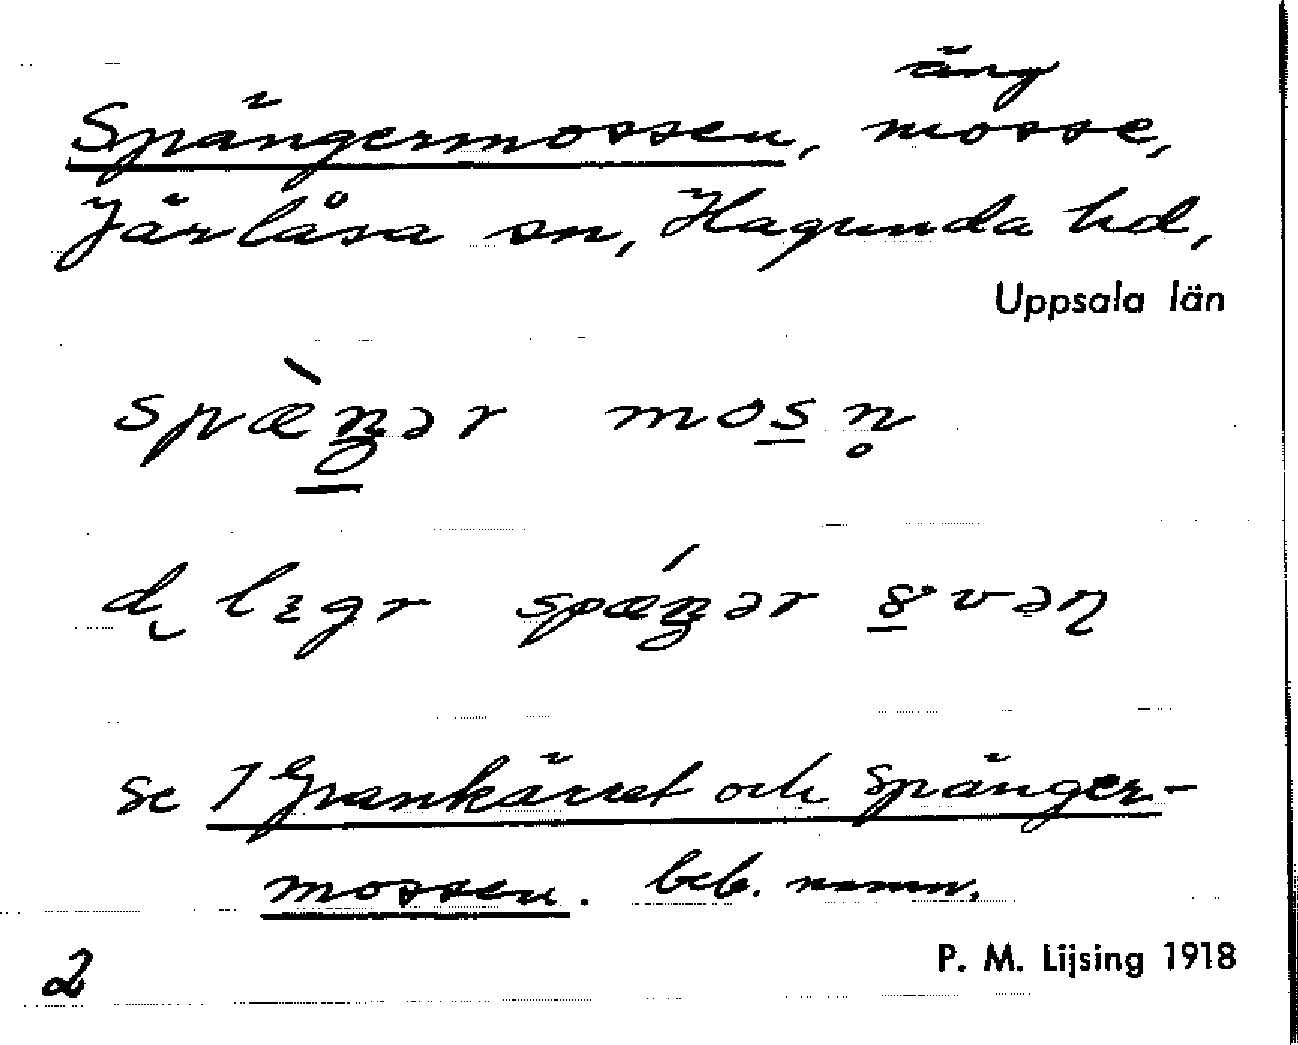 äng
Spängermossen, mosse,
Järlåsa sn, Hagunda hd,
Uppsala län
spæ̀ŋər mosn̥
d lɪgr spǽŋər
se 1 Grankärret och Spänger-
mossen. beb. namn.
2
P. M. Lijsing 1918